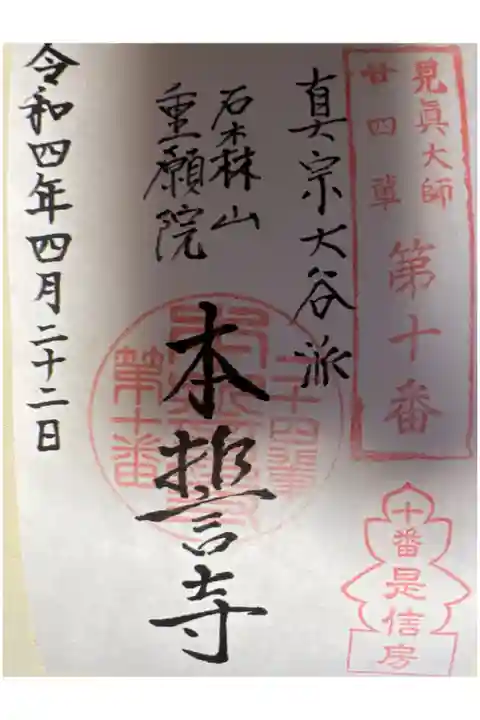 見真大師
廿四輩
第十番
真宗大谷派
石森山
重願院
本誓寺
二十四輩
第十番
令和四年四月二十二日
十番
是信房